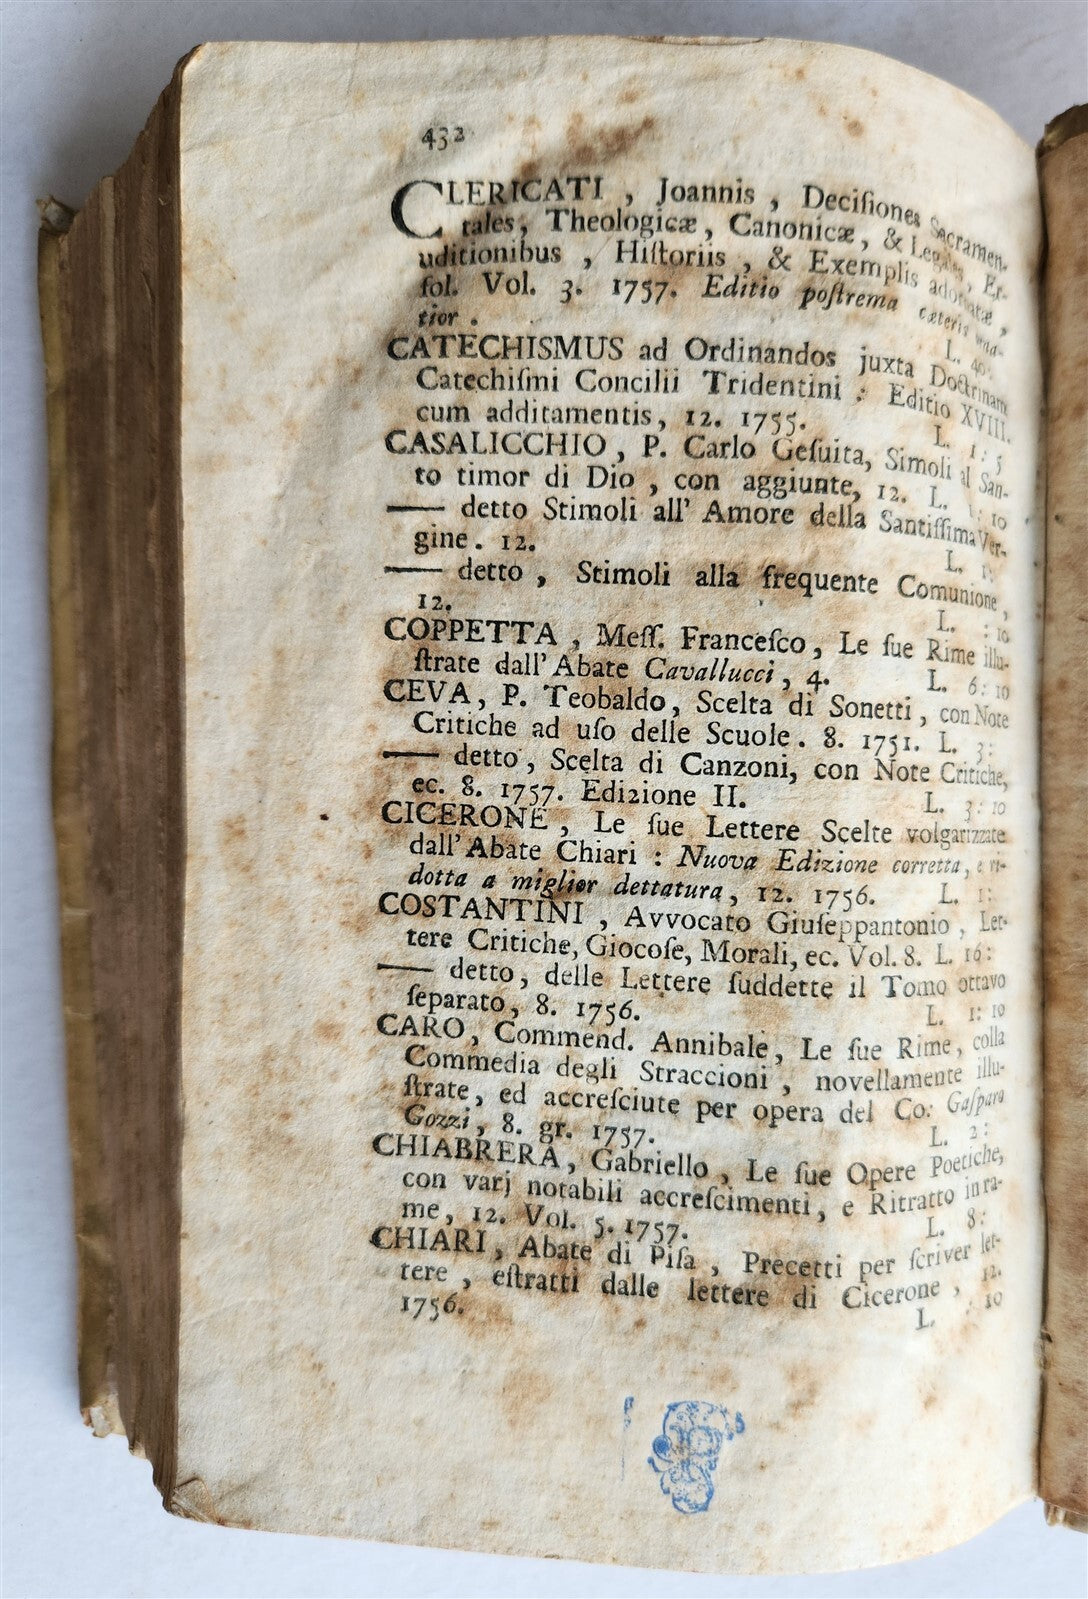 432
CLERICATI , Joannis , Deciſiones Sacramen-
tales, Theologicæ, Canonicæ, & Legales, Er-
uditionibus , Hiſtoriis , & Exemplis adornatæ ,
fol. Vol. 3. 1757. Editio poſtrema cæteris
tior . L. 40:
CATECHISMUS ad Ordinandos juxta Doctrinam
Catechiſmi Concilii Tridentini : Editio XVIII.
cum additamentis, 12. 1755. L. 1: 5
CASALICCHIO, P. Carlo Geſuita, Simoli al San-
to timor di Dio , con aggiunte, 12. L. 1: 10
—— detto Stimoli all' Amore della Santiſſima Ver-
gine. 12. L. 1:
—— detto , Stimoli alla frequente Comunione ,
12. L. : 10
COPPETTA , Meſſ. Franceſco, Le ſue Rime illu-
ſtrate dall' Abate Cavallucci, 4. L. 6: 10
CEVA, P. Teobaldo, Scelta di Sonetti, con Note
Critiche ad uſo delle Scuole. 8. 1751. L. 3:
—— detto, Scelta di Canzoni, con Note Critiche,
ec. 8. 1757. Edizione II. L. 3: 10
CICERONE , Le ſue Lettere Scelte volgarizzate
dall' Abate Chiari : Nuova Edizione corretta, e ri-
dotta a miglior dettatura, 12. 1756. L. 1:
COSTANTINI , Avvocato Giuſeppantonio , Let-
tere Critiche, Giocoſe, Morali, ec. Vol. 8. L. 16:
—— detto, delle Lettere ſuddette il Tomo ottavo
ſeparato, 8. 1756. L. 1: 10
CARO, Commend. Annibale, Le ſue Rime, colla
Commedia degli Straccioni , novellamente illu-
ſtrate, ed accreſciute per opera del Co: Gaſparo
Gozzi, 8. gr. 1757. L. 2:
CHIABRERA, Gabriello , Le ſue Opere Poetiche,
con varj notabili accreſcimenti, e Ritratto in ra-
me, 12. Vol. 5. 1757. L. 8:
CHIARI, Abate di Piſa , Precetti per ſcriver let-
tere , eſtratti dalle lettere di Cicerone , 12.
1756. L. : 10